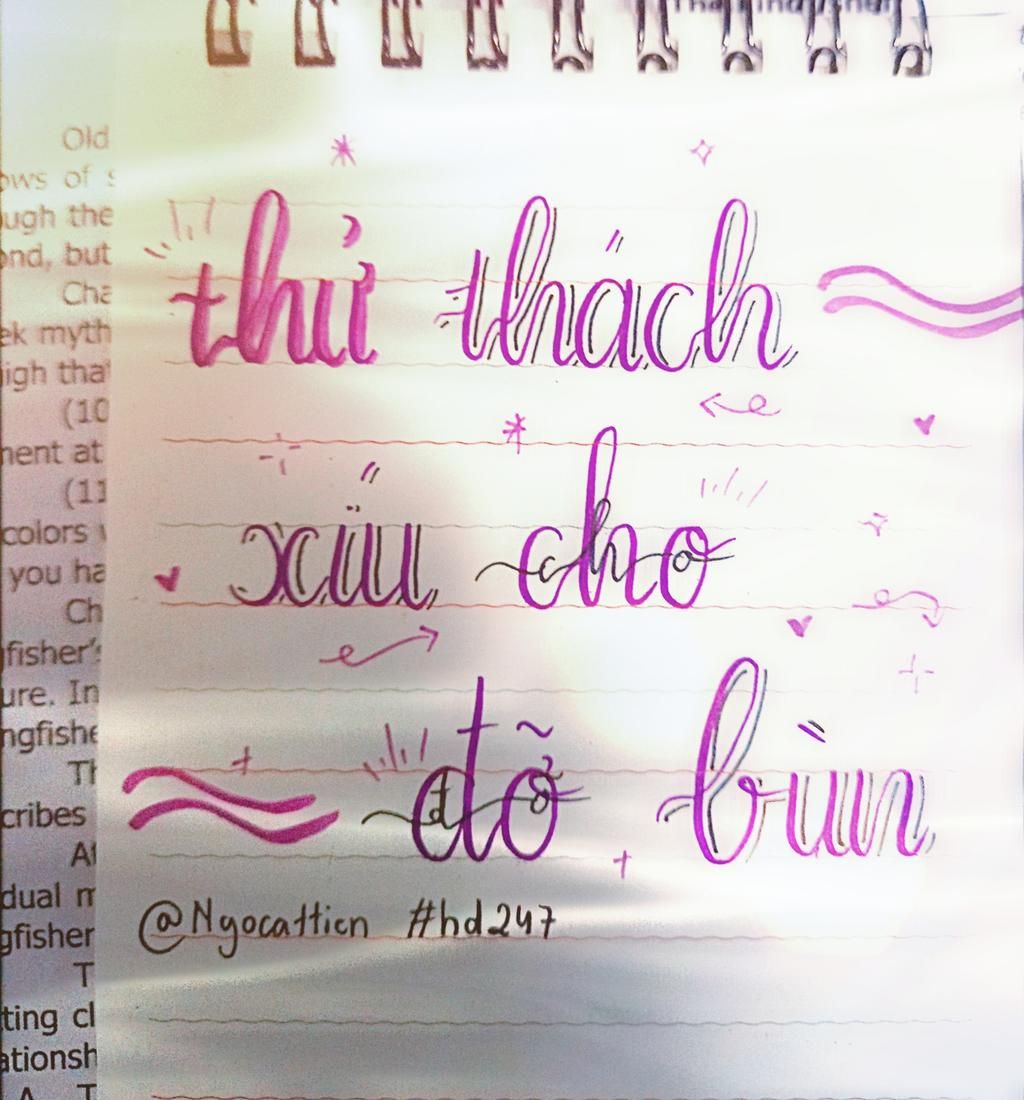 thử thách
xíu cho
đỡ bùn
@Ngocattien #hd247
Old
ows of s
ugh the
ond, but
Cha
ek myth
igh tha
(10
ment at
(11
colors
you ha
Ch
gfisher's
ure. In
ngfishe
Th
cribes
Af
dual m
gfisher
T
ting cl
ationsh
A T